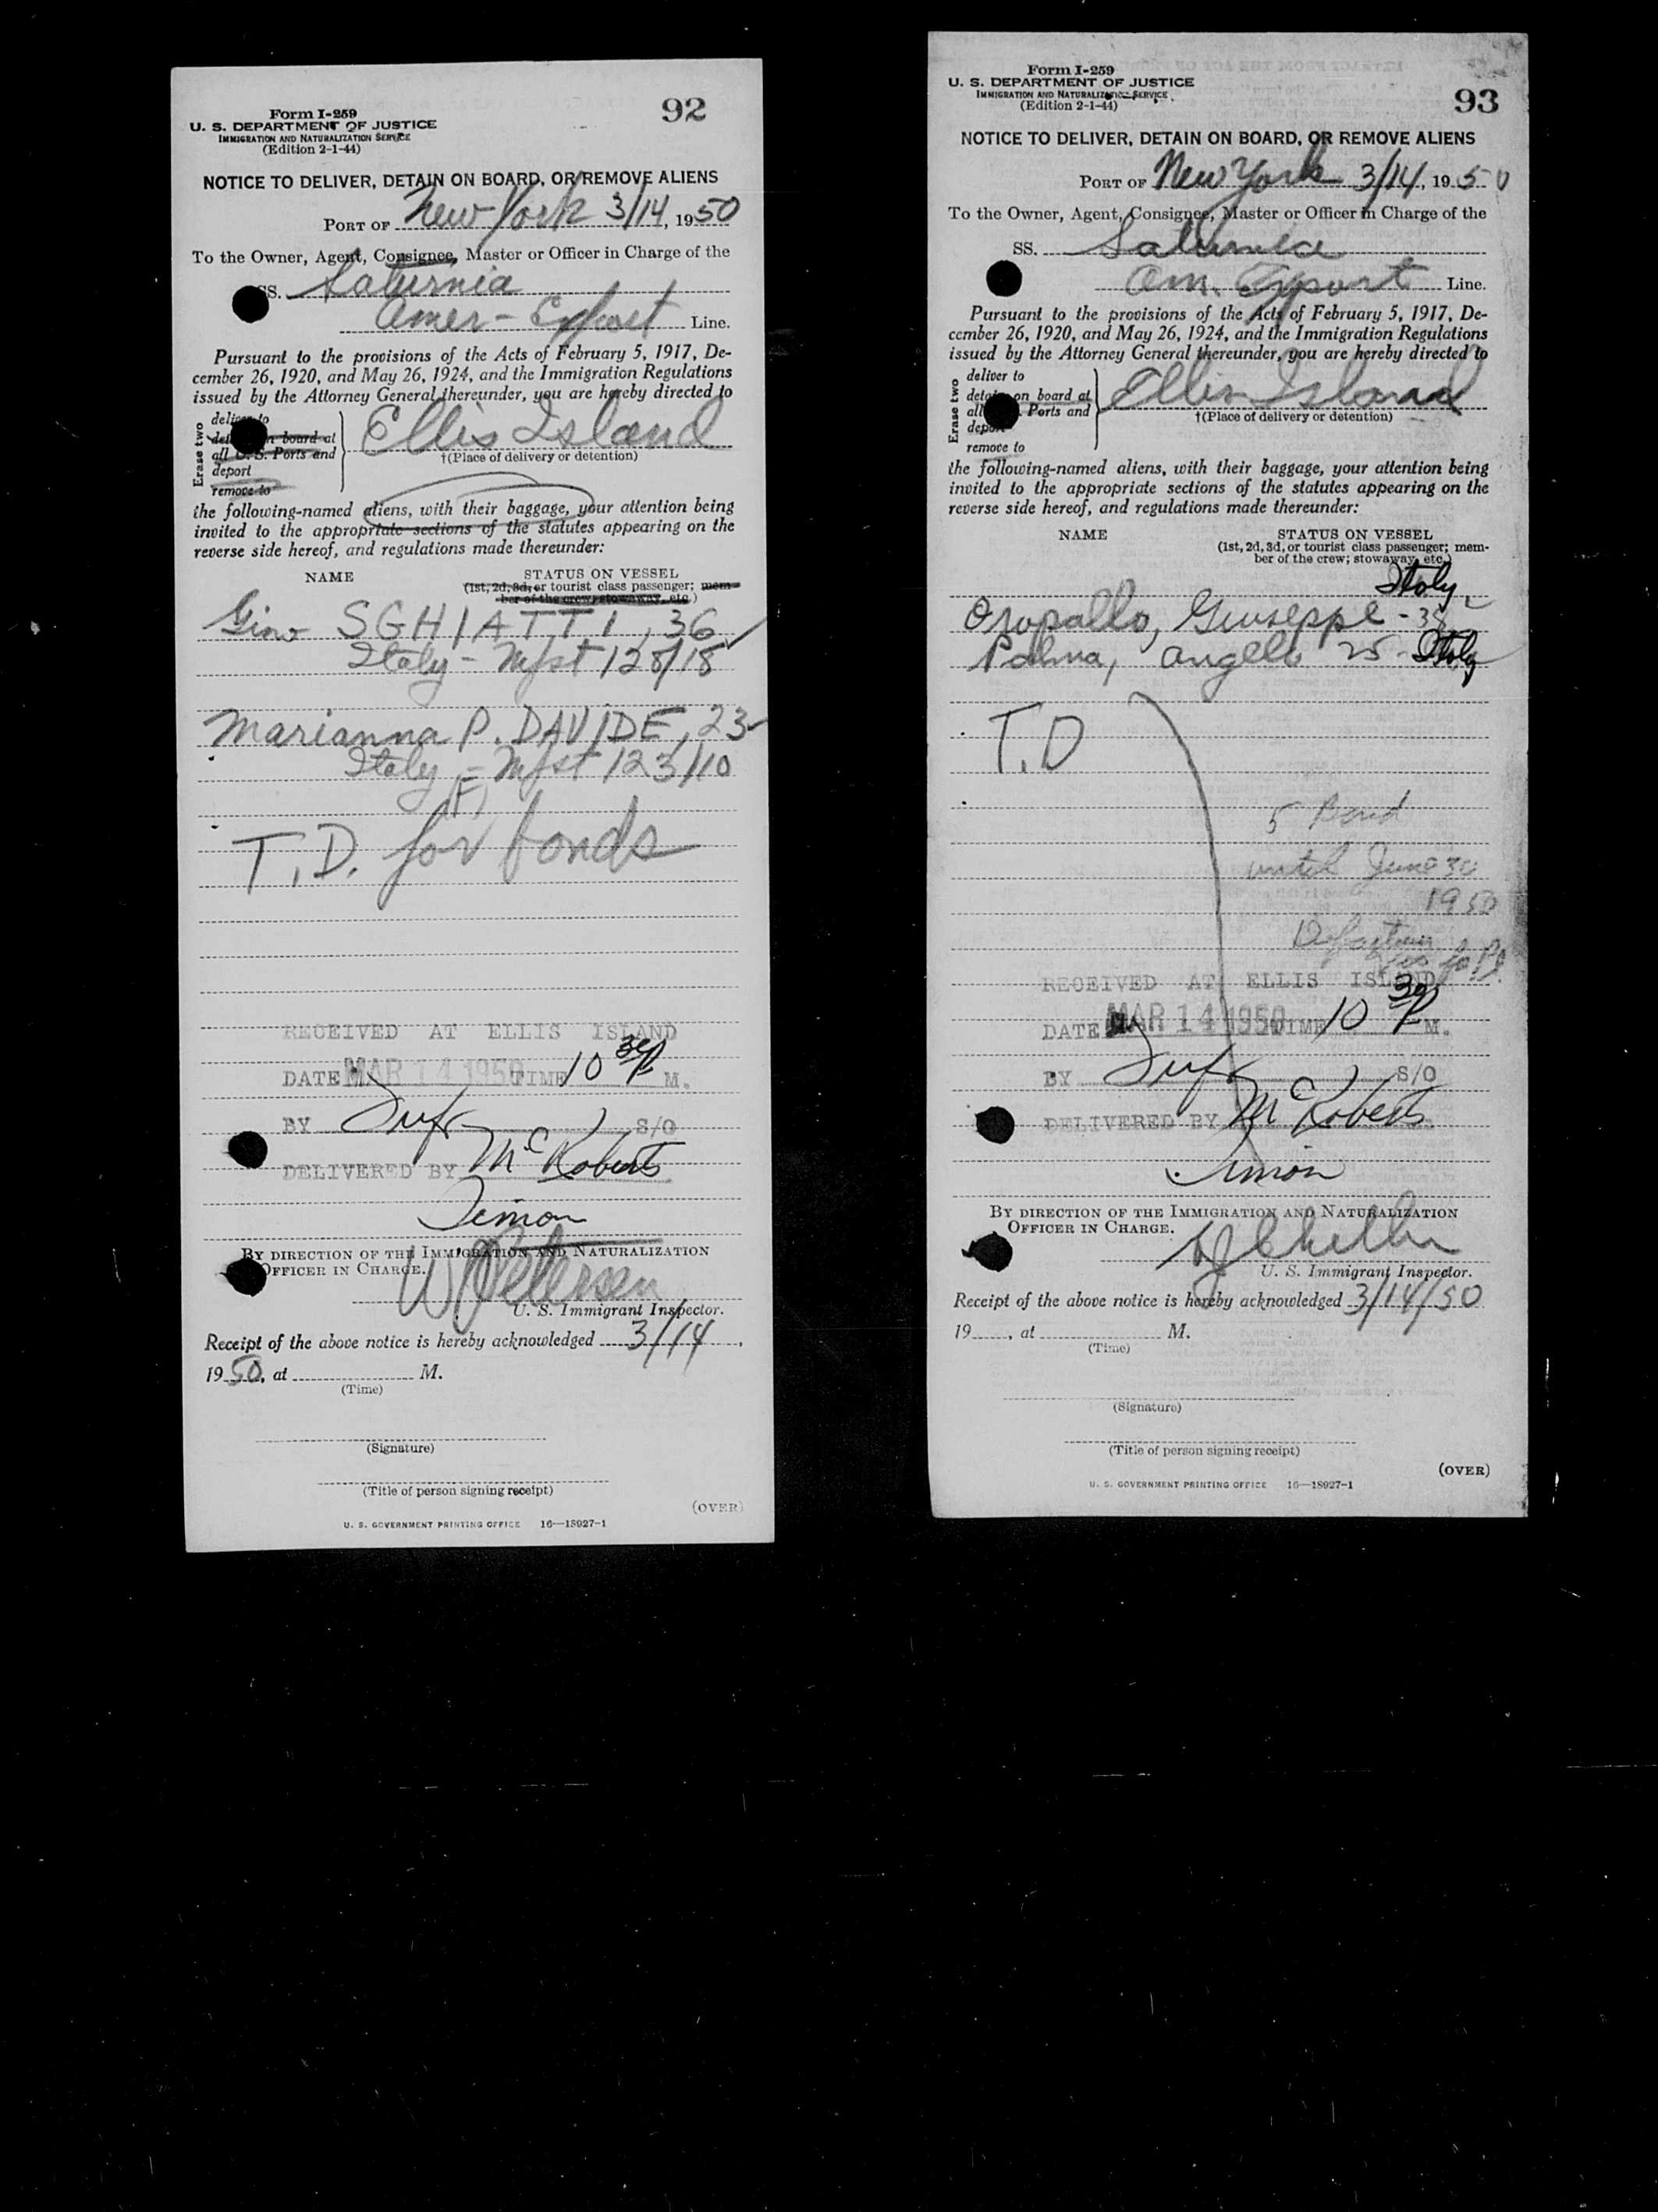 Form I-259
U. S. DEPARTMENT OF JUSTICE
IMMIGRATION AND NATURALIZATION SERVICE
(Edition 2-1-44)
92
NOTICE TO DELIVER, DETAIN ON BOARD, OR REMOVE ALIENS
PORT OF New York 3/14, 1950
To the Owner, Agent, Consignee, Master or Officer in Charge of the
SS. Saturnia
Amer-Export Line.
Pursuant to the provisions of the Acts of February 5, 1917, De-
cember 26, 1920, and May 26, 1924, and the Immigration Regulations
issued by the Attorney General thereunder, you are hereby directed to
Erase two
deliver to
detain on board at
all U. S. Ports and
deport
remove to
Ellis Island
†(Place of delivery or detention)
the following-named aliens, with their baggage, your attention being
invited to the appropriate sections of the statutes appearing on the
reverse side hereof, and regulations made thereunder:
NAME STATUS ON VESSEL
(1st, 2d, 3d, or tourist class passenger; mem-
ber of the crew; stowaway, etc.)
Gino SGHIATTI, 36
Italy - Mfst 128/18
Marianna P. DAVIDE, 23
Italy - Mfst 123/10
(F)
T.D. for bonds
RECEIVED AT ELLIS ISLAND
DATE MAR 14 1950 TIME 10 30 P M.
BY S/O
DELIVERED BY McRoberts
Simon
BY DIRECTION OF THE IMMIGRATION AND NATURALIZATION
OFFICER IN CHARGE.
W Petersen
U. S. Immigrant Inspector.
Receipt of the above notice is hereby acknowledged 3/14,
1950, at M.
(Time)
(Signature)
(Title of person signing receipt)
(OVER)
U. S. GOVERNMENT PRINTING OFFICE 16—18927-1
Form I-259
U. S. DEPARTMENT OF JUSTICE
IMMIGRATION AND NATURALIZATION SERVICE
(Edition 2-1-44)
93
NOTICE TO DELIVER, DETAIN ON BOARD, OR REMOVE ALIENS
PORT OF New York 3/14, 1950
To the Owner, Agent, Consignee, Master or Officer in Charge of the
SS. Saturnia
Am. Export Line.
Pursuant to the provisions of the Acts of February 5, 1917, De-
cember 26, 1920, and May 26, 1924, and the Immigration Regulations
issued by the Attorney General thereunder, you are hereby directed to
Erase two
deliver to
detain on board at
all U. S. Ports and
deport
remove to
Ellis Island
†(Place of delivery or detention)
the following-named aliens, with their baggage, your attention being
invited to the appropriate sections of the statutes appearing on the
reverse side hereof, and regulations made thereunder:
NAME STATUS ON VESSEL
(1st, 2d, 3d, or tourist class passenger; mem-
ber of the crew; stowaway, etc.)
Italy
Oropallo, Giuseppe - 38
Palma, Angelo 25 - Italy
T.D
5 Bond
until June 30
1950
RECEIVED AT ELLIS ISLAND
DATE MAR 14 1950 TIME 10 30 P M.
BY S/O
DELIVERED BY McRoberts
Simon
BY DIRECTION OF THE IMMIGRATION AND NATURALIZATION
OFFICER IN CHARGE.
U. S. Immigrant Inspector.
Receipt of the above notice is hereby acknowledged 3/14/50
19 , at M.
(Time)
(Signature)
(Title of person signing receipt)
(OVER)
U. S. GOVERNMENT PRINTING OFFICE 16—18927-1